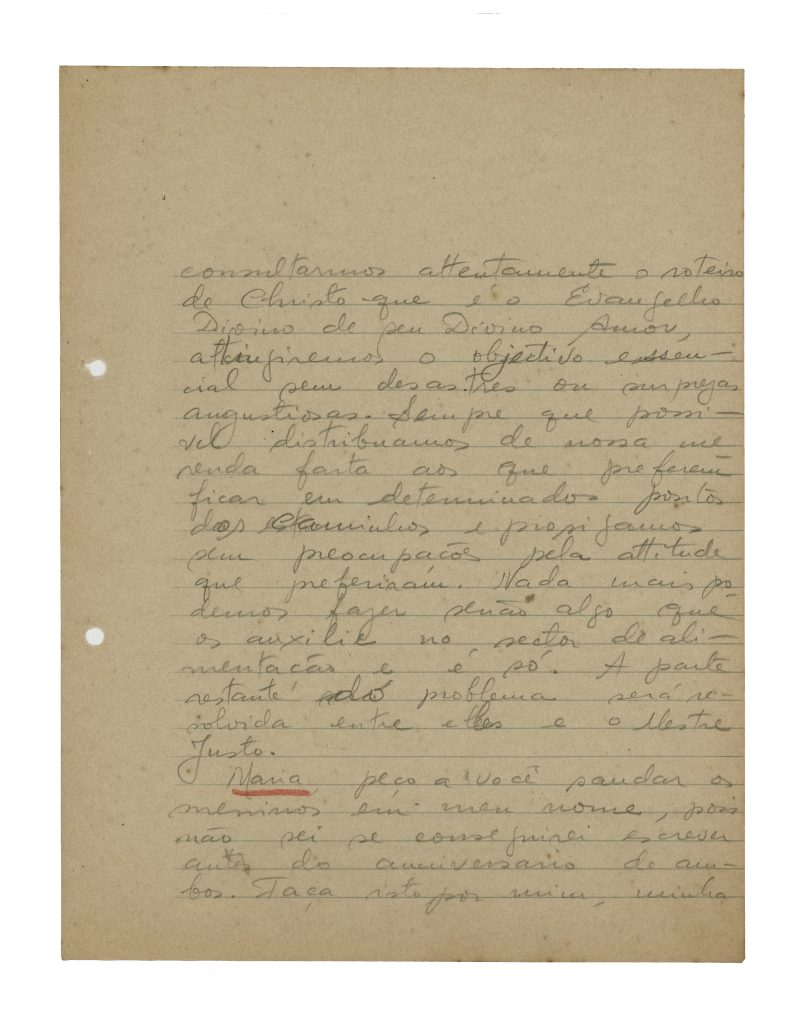 consultarmos attentamente o roteiro
de Christo que é o Evangelho
Divino de seu Divino Amor,
attingiremos o objectivo essen-
cial sem desastres ou surprezas
angustiosas. Sempre que possi-
vel distribuamos de nossa me
renda farta aos que preferem
ficar em determinados pontos
dos caminhos e prosigamos
sem preocupações pela attitude
que preferiram. Nada mais po
demos fazer senão algo que
os auxilie no sector de ali-
mentacão e é só. A parte
restante do problema será re-
solvida entre elles e o Mestre
Justo.
Maria, peço a você saudar os
meninos em meu nome, pois
não sei se conseguirei escrever
antes do anniversario de am-
bos. Faça isto por mim, minha